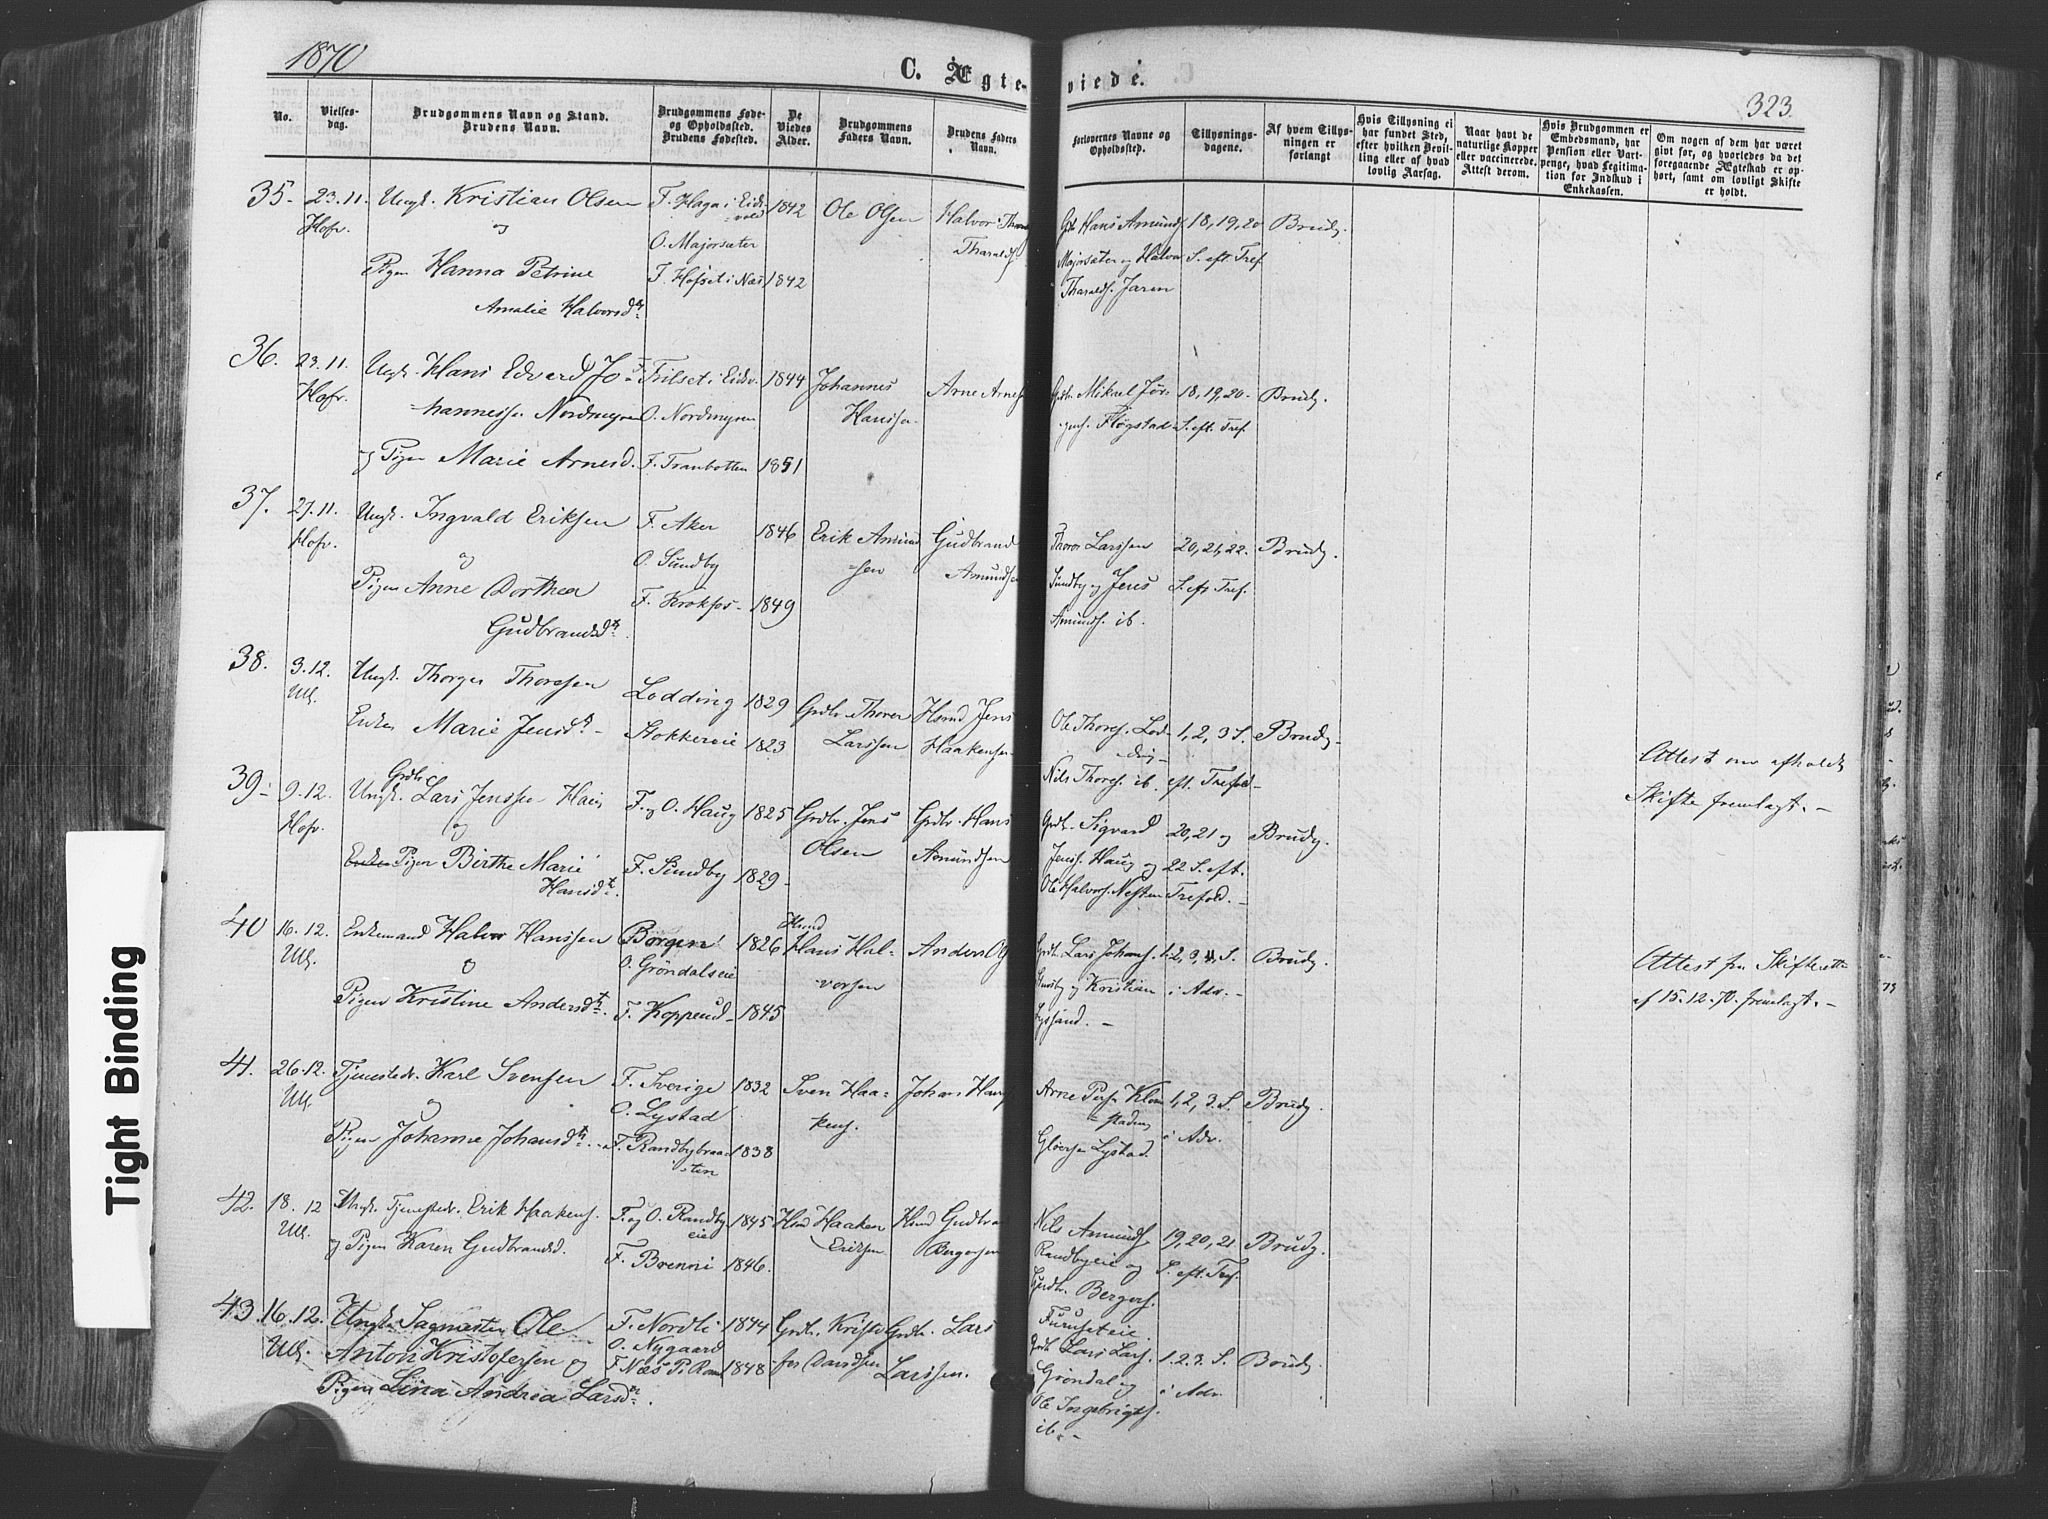 1870
C. Ægte-
viede.
323.
No.
Vielses-
dag.
Brudgommens Navn og Stand.
Brudens Navn.
Brudgommens Føde-
og Opholdssted.
Brudens Fødested.
De
Viedes
Alder.
Brudgommens
Faders Navn.
Brudens Faders
Navn.
Forlovernes Navne og
Opholdssted.
Tillysnings-
dagene.
Af hvem Tillys-
ningen er
forlangt
Hvis Tillysning ei
har fundet Sted,
efter hvilken Bevil-
ling eller af hvad
lovlig Aarsag.
Naar havt de
naturlige Kopper
eller vaccinerede.
Attest derom.
Hvis Brudgommen er
Embedsmand, har
Pension eller Vart-
penge, hvad Legitima-
tion for Indskud i
Enkekassen.
Om nogen af dem har været
gift før, og hvorledes da det
foregaaende Ægteskab er op-
hørt, samt om lovligt Skifte
er holdt.
35.
23.11.
Hofv.
Ungk. Kristian Olsen
og
Pigen Hanna Petrine
Amalie Halvorsd.
F. Haga i Eids-
vold
O. Majorsæter
F. Hofset i Næs
1842
1842
Ole Olsen
Halvor
Tharalds.
Grdb. Hans Amunds.
Majorsæter og Halvor
Tharalds. Jaren
18, 19, 20
S. eft. Tref.
Brudg.
36.
23.11.
Hofv.
Ungk. Hans Edvard Jo-
hannessen Nordmyren
og Pigen Marie Arnesd.
F. Trilset i Eidsv.
O. Nordmyren
F. Tranbotten
1844
1851
Johannes
Hanssen
Arne Arnes.
Grdb. Mikael Jør-
gens. Fløgstad
18, 19, 20.
S. eft. Tref.
Brudg.
37.
27.11.
Hofv.
Ungk. Ingvald Eriksen
og
Pigen Anne Dorthea
Gudbrandsdt.
F. Aker
O. Sundby
F. Krokfos
1846
1849
Erik Amund
sen
Gudbrand
Amundsen
Thorer Larssen
Sundby og Jens
Amunds. ib.
20, 21, 22.
S. eft. Tref.
Brudg.
38.
3.12.
Ull.
Ungk. Thorger Thoresen
Enken Marie Jensdt.
Lodding
Stokkereie
1829
1823
Grdbr. Thorer
Larssen
Husmd Jens
Haakensen
Ole Thores. Lod-
ding
Nils Thores. ib.
1, 2, 3 S.
eft. Trefold
Brudg.
Attest om afholdt
Skifte fremlagt.
39.
9.12.
Hofv.
Grdbr.
Ungk. Lars Jenssen Haug
og
Enken Pigen Birthe Marie
Hansdt.
F. og O. Haug
F. Sundby
1825
1829
Grdbr. Jens
Olsen
Grdbr. Hans
Amundsen
Grdbr. Sigvard
Jenss. Haug og
Ole Halvors. Nesten
20, 21 og
22 S. eft.
Trefold.
Brudg.
40
16.12.
Ull.
Enkemand Halvor Hanssen
og
Pigen Kristine Andersdt.
Borgen
O. Grøndalseie
F. Koppend
1826
1845
Husmd
Hans Hal-
vorsen
Anders
Grdb. Lars Johans.
og Kristian
1. 2, 3, 4, S.
i Adv.
Brudg.
Attest fra Skifteretten
af 15.12.70 fremlagt.
41.
26.12.
Ull.
Tjenestedr. Karl Svensen
og
Pigen Johanne Johansdt.
F. Sverige
O. Lystad
F. Randbybraa-
ten
1832
1838
Sven Haa-
kens.
Johans
Arne Pers.
Gløersen Lystad.
1, 2, 3. S.
i Adv.
Brudg.
42.
18.12
Ull.
Ungk. Tjenestedr. Erik Haakens.
og Pigen Karen Gudbrandsd.
F. og O. Randby
eie
F. Brenni
1845
1846.
Husmd Haaken
Eriksen
Husmd Gudbra
Bergersen
Nils Amunds.
Randbyeie og
Grdbr. Bergers.
Furuseteie.
19, 20, 21
S. eft. Tref.
Brudg.
43.
16.12.
Ull.
Ungk. Sagmester Ole
Anton Kristofersen og
Pigen Lina Andrea Larsdt.
F. Nordli
O. Nygaard
F. Næs P. Rom
1844
1848
Grdbr. Kristo
fer Davidsen
Grdbr. Lars
Larssen.
Grdb. Lars Lars.
Grøndal og
Ole Ingebrigts.
ib.
1. 2. 3. S.
i Adv
Brudg.
Tight Binding